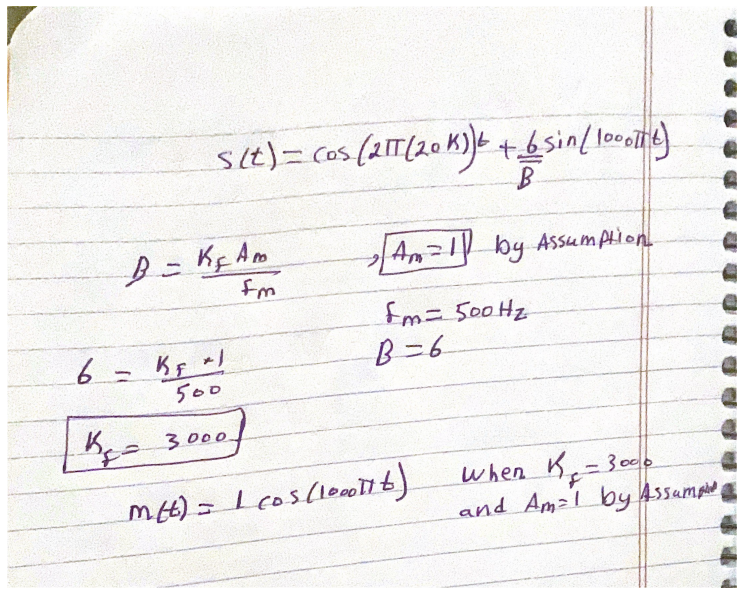 s(t) = cos(2π(20K))t + 6 sin(1000πt)
B
B = Kf Am / fm , Am = 1 by Assumption
fm = 500 Hz
6 = Kf *1 / 500 B = 6
Kf = 3000
m(t) = 1 cos(1000πt) when Kf = 3000
and Am=1 by Assumption